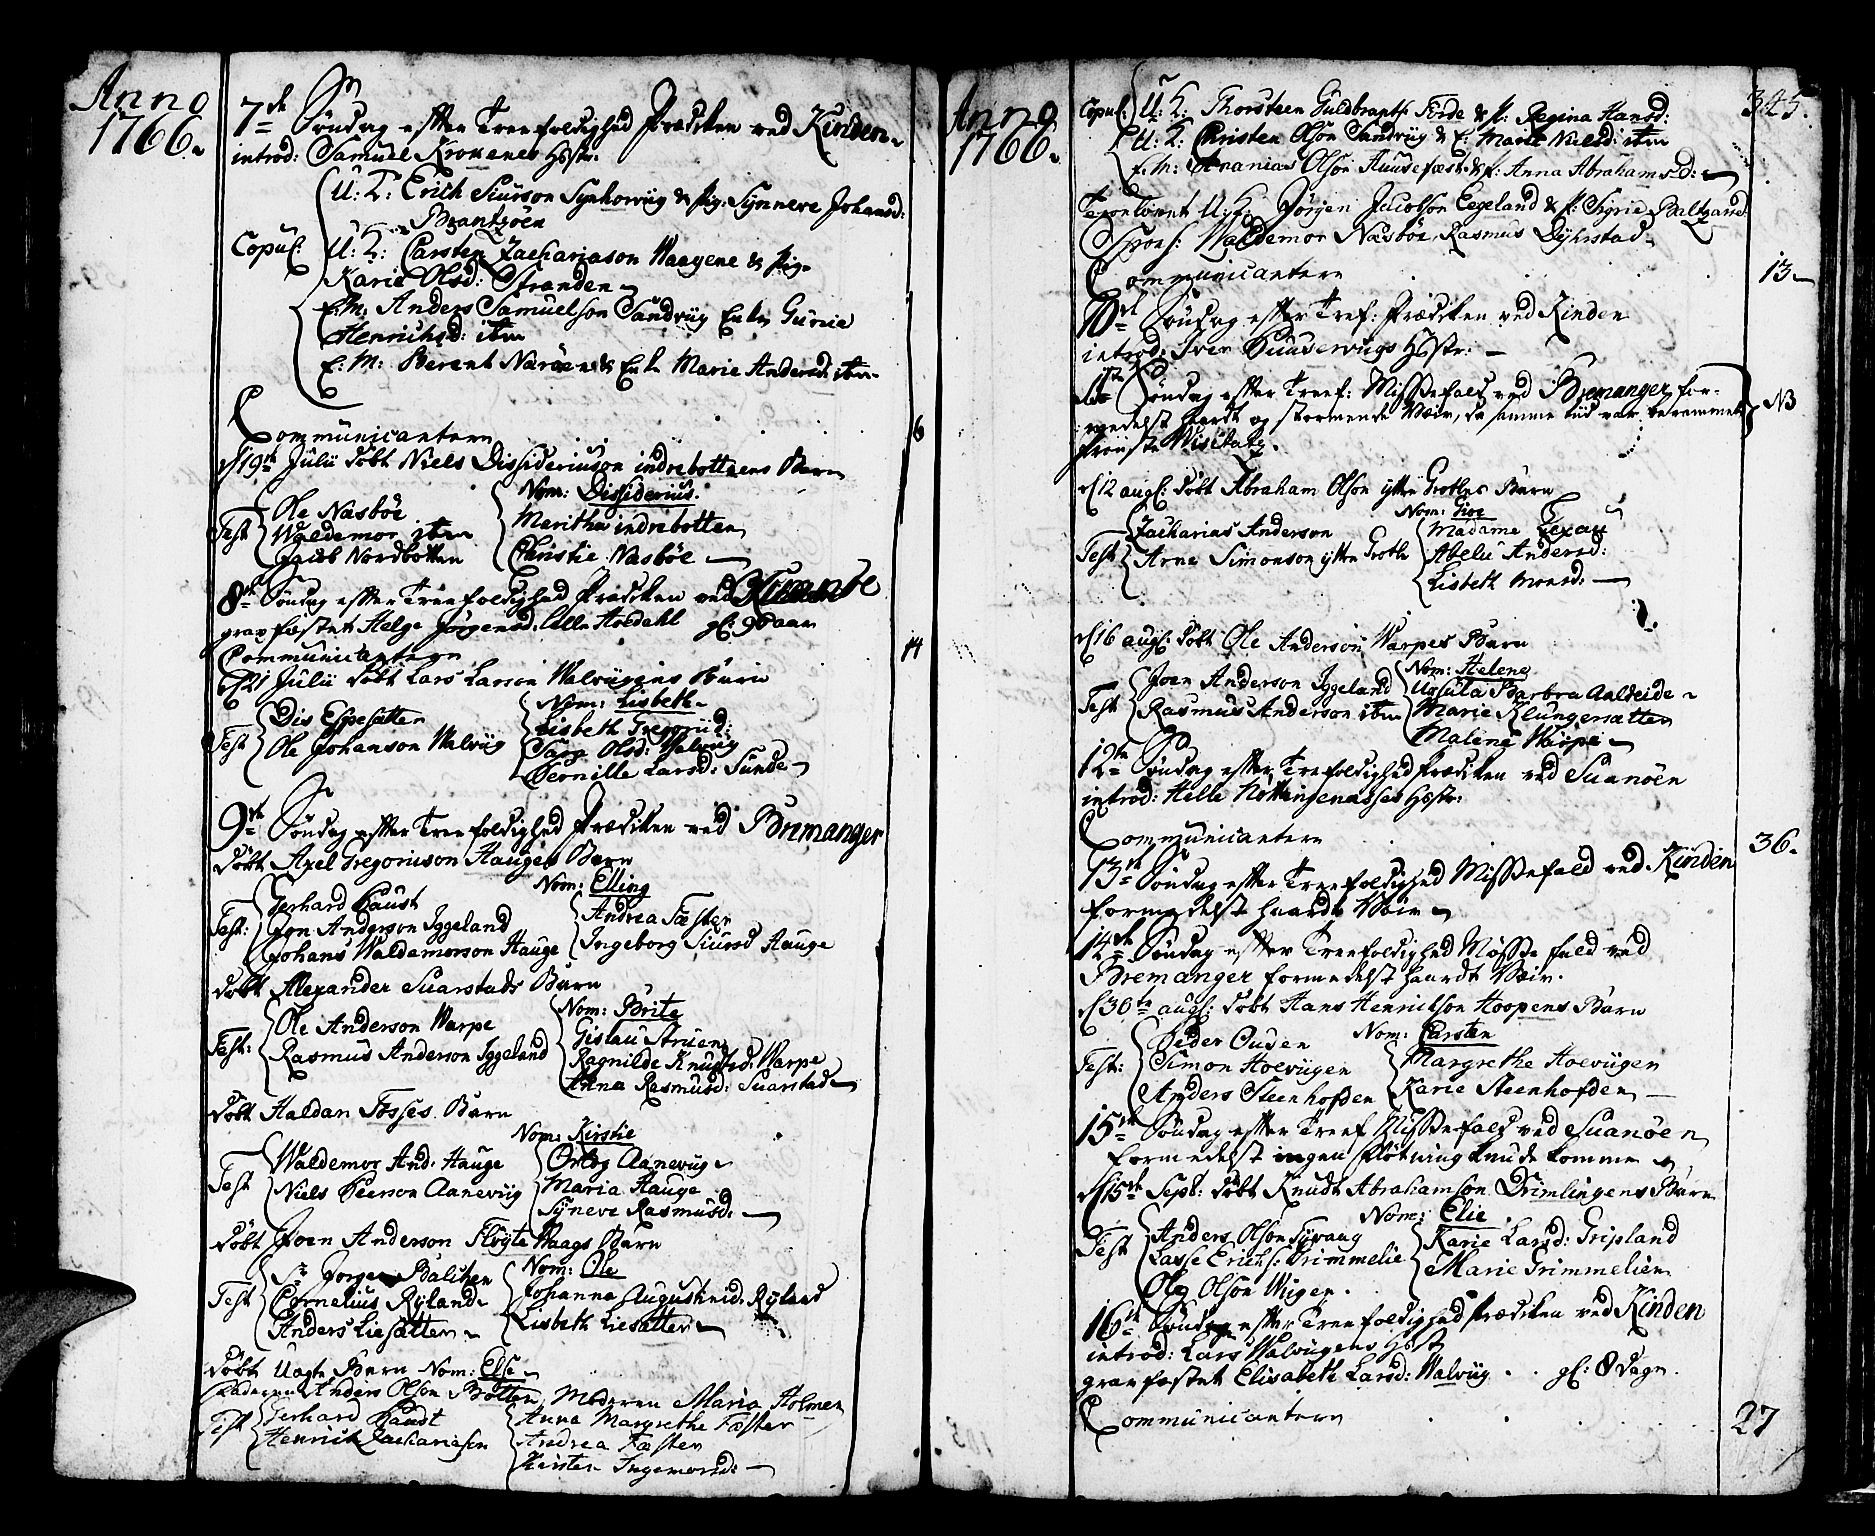 Anno
1766.
7de Søndag effter Treefoldighed Prædiken ved Kinden
introd: Samuel Hstr:
Copul:
U: K: Erich Siurson & Pig: Synneve Johansd:
U: K: Carsten Zachariason Waagene & Pig
Karie Olsd: Stranden
E: M: Anders Samuelson Sandvüg Enke Gurie
Henrichsd: iten
E: M: Berent & Enke Marie Andersd: iten
Communicantern
6
d 19de Julii døbt Niels Dissideriuson indrebottens Barn
Nom: Dissiderius
Test
Ole Nasbøe
Waldemor iten
Jacob Nordbotten
Maritha indrebotten
Christie Nasbøe
8de Søndag effter Treefoldighed Prædiken ved
gravfæstet Helge Jørgensd: gl: 90 aar
Communicantern
14
d 21 Julii døbt Lars Larson Walvügens Barn
Nom: Lisbeth
Test
Ole Johanson Walvüg
Lisbeth
Sara Olsd: Walvüg
Pernille Larsd: Sunde
9de Søndag effter Treefoldighed Prædiken ved Bremanger
døbt Axel Gregoriuson Hauges Barn
Nom: Elling
Test:
Gerhard Faust
Jon Anderson Iggeland
Johans Waldemorson Hauge
Andrea Fæster
Ingeborg Siursd Hauge
døbt Alexander Suarstads Barn
Nom: Brite
Test:
Ole Anderson Warpe
Rasmus Anderson Iggeland
Gislau Struen
Ragnilde Knudsd: Warpe
Anna Rasmusd: Suarstad
døbt Haldan Fosses Barn
Nom: Kirstie
Test
Waldemor And: Hauge
Niels Peerson Aanevüg
Aanevüg
Maria Hauge
Syneve Rasmusd:
døbt Joen Anderson Fløyte Waags Barn
Nom: Ole
Test
Sr Jørgen Balchen
Cornelius Ryland
Anders Liesætter
Johanna Augustinid: Ryland
Lisbeth Liesætter
døbt Uægte Barn Nom: Else
Faderen Anders Olson Botten, Moderen Maria Holmen
Test
Gerhard Faust
Henrich Zachariason
Anna Margrethe Fæster
Andrea Fæster
Kirsten Ingemorsd:
Anno
1766.
345.
Copul:
U: K: Thorsteen Guldbrants: Førde & P: Regina Hansd:
U: K: Christen Olson Sandvüg & E: Marte Nielsd: iten
E: M: Ananias Olson & P: Anna Abrahamsd:
U: K: Jørgen Jacobson Eegeland & P: Sigrie
Spons: Waldemor Nasbøe, Rasmus Dyhrstad
Communicantern
13
10de Søndag effter Tref: Prædiken ved Kinden
introd: Iver Hstr:
11te Søndag effter Treef: Missefald ved Bremanger for-
medelst haardt og stormende Væir, da samme tiid var berammet
NB
Prouste Visitatz.
d 12 aug: døbt Abraham Olson ytre Grotles Barn
Nom:
Test
Zacharias Anderson
Arne Simonson ytre Grotle
Madame Lexau
Abelü Andersd:
Lisbeth Monsd:
d 16 aug: døbt Ole Anderson Warpes Barn
Nom: Helene
Test
Joen Anderson Iggeland
Rasmus Anderson iten
Ursula Barbra Aaldeide
Marie Klungersætter
Malene Warpe
12te Søndag effter Treefoldighed Prædiken ved Suanøen
introd: Helle Hstr:
Communicantern
36.
13de Søndag effter Treefoldighed Missefald ved Kinden
formedelst haardt Væir
14de Søndag effter Treefoldighed Missefald ved
Bremanger formedelst haardt Væir.
d 30te aug: døbt Hans Henrichson Hoopens Barn
Nom: Carsten
Test:
Peder Ousen
Simon Hoevügen
Anders Steenhofden
Margrethe Hoevügen
Karie Steenhofden
15de Søndag effter Treef Missefald ved Suanøen
formedelst ingen fløtning kunde komme
d 15de Sept: døbt Knudt Abrahamson Drimlingens Barn
Nom: Elie
Test
Anders Olson
Lasse Erichs: Grimmelie
Ole Olson Wügen
Karie Larsd: Gripland
Marie Grimmelien
16de Søndag effter Treefoldighed Prædiken ved Kinden
introd: Lars Walvügens Hst
gravfæstet Elisabeth Larsd: Walvüg gl: 8 dage
Communicantern
27